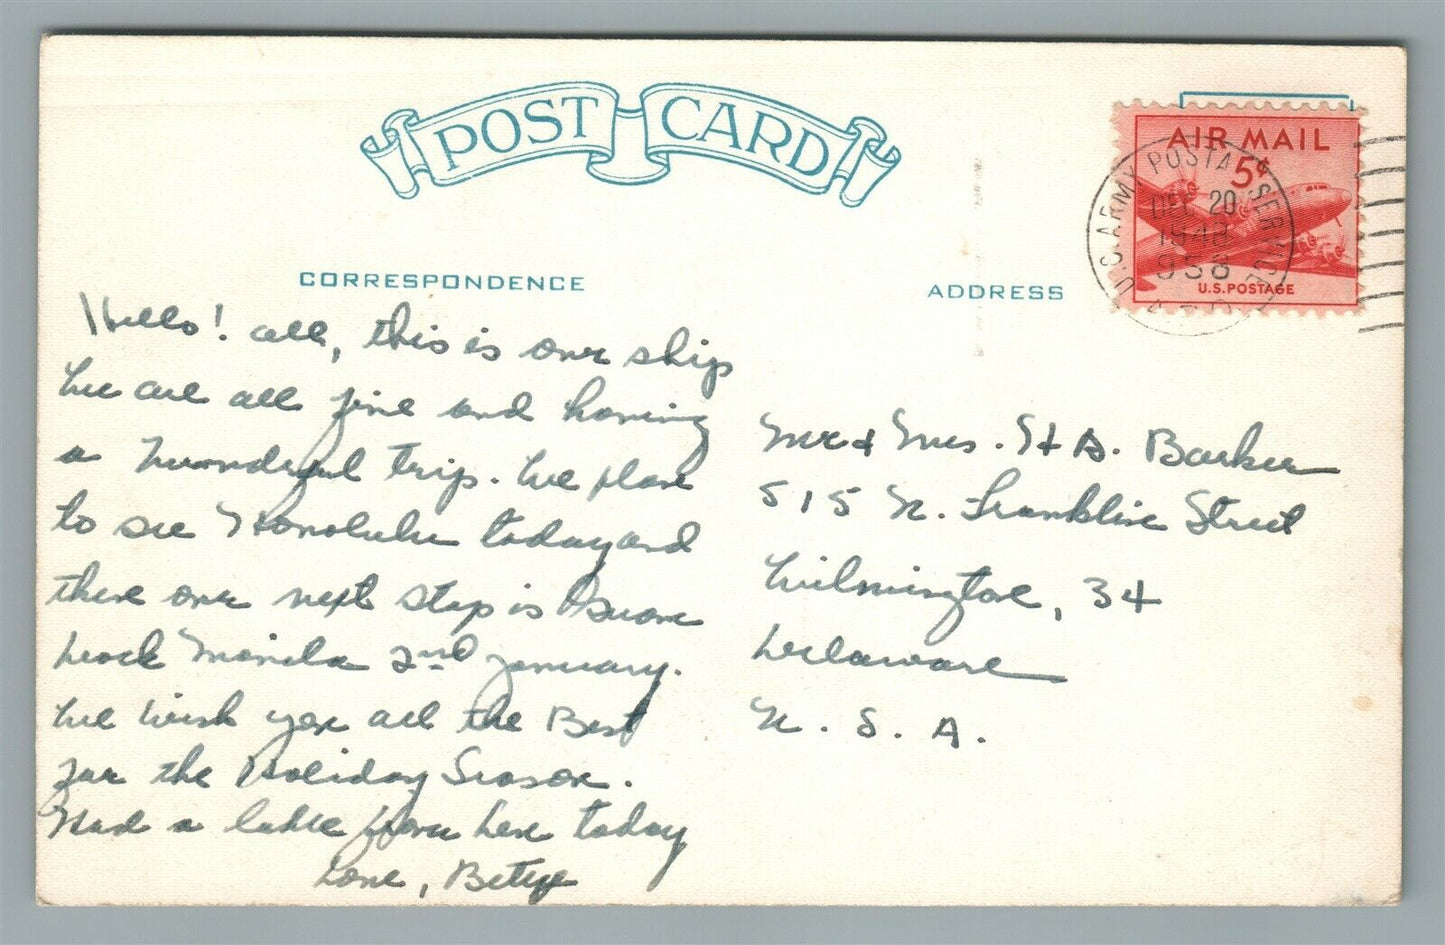 POST CARD
AIR MAIL
5¢
U.S. POSTAGE
U.S. ARMY POSTAL SERVICE
DEC 20
1948
958
CORRESPONDENCE
ADDRESS
Hello! all, this is our ship
We are all fine and having
a wonderful trip. We plan
to see Honolulu today and
then our next stop is Guam
then Manila 2nd January.
We wish you all the Best
for the Holiday Season.
Had a from here today
Love, Bettye
Mr & Mrs. H A. Barker
515 N. Franklin Street
Wilmington, 34
Delaware
U. S. A.